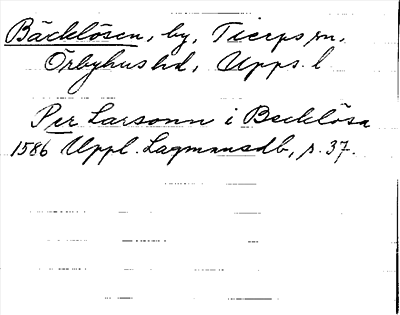 Bäcklösen, by, Tierps sn,
Örbyhus hd, Upps. l
Per Larsonn i Becklösa
1586 Uppl. Lagmansdb, s. 37.